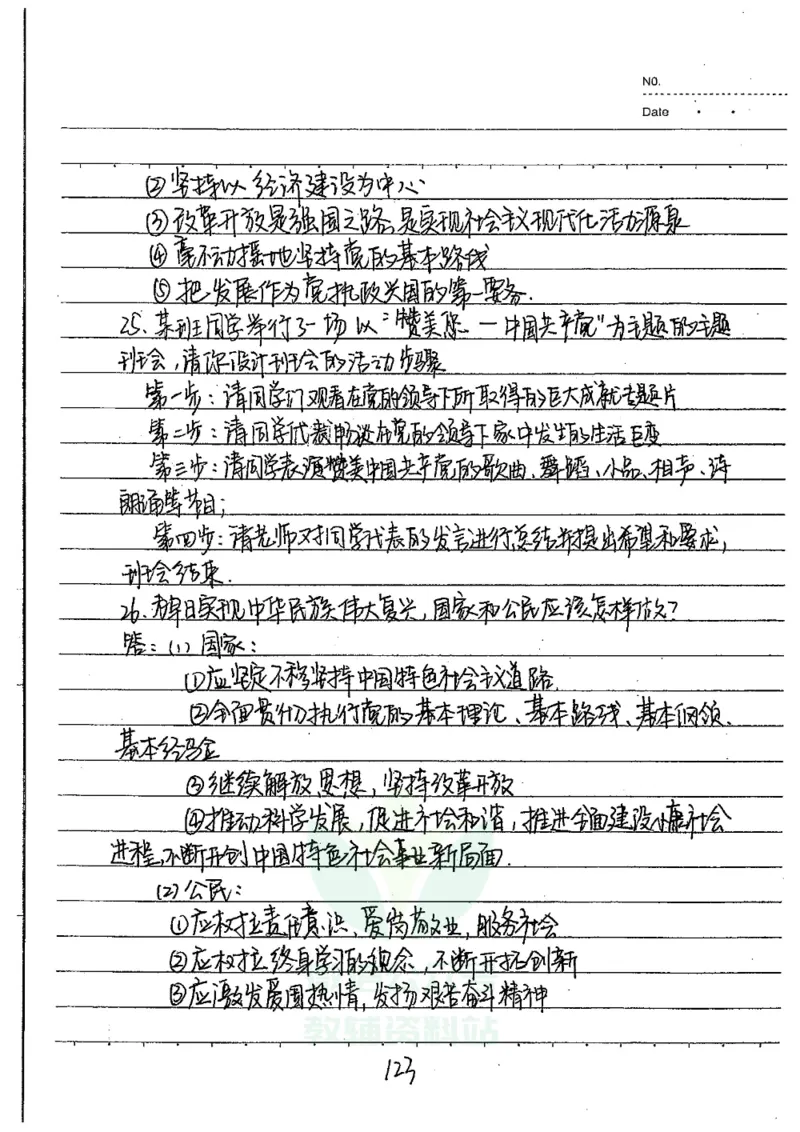 NO.
Date
(2)坚持以经济建设为中心
③改革开放是强国之路,是实现社会主义现代化活力源泉
④毫不动摇地坚持党的基本路线
⑤把发展作为党执政兴国的第一要务.
25.某班同学举行了一场以"赞美您—中国共产党"为主题的主题
班会,请你设计班会的活动步骤
第一步:请同学们观看在党的领导下所取得的巨大成就专题片
第二步:请同学代表畅谈在党的领导下家中发生的生活巨变
第三步:请同学表演赞美中国共产党的歌曲、舞蹈、小品、相声、诗
朗诵等节目;
第四步:请老师对同学代表的发言进行总结并提出希望和要求,
班会结束.
26.为早日实现中华民族伟大复兴,国家和公民应该怎样做?
答:(1)国家:
①应坚定不移坚持中国特色社会主义道路.
②全面贯彻执行党的基本理论、基本路线、基本纲领、
基本经验
③继续解放思想,坚持改革开放
④推动科学发展,促进社会和谐,推进全面建设小康社会
进程,不断开创中国特色社会事业新局面.
(2)公民:
①应树立责任意识,爱岗敬业,服务社会
②应树立终身学习的观念,不断开拓创新
③应激发爱国热情,发扬艰苦奋斗精神
教辅资料站
123